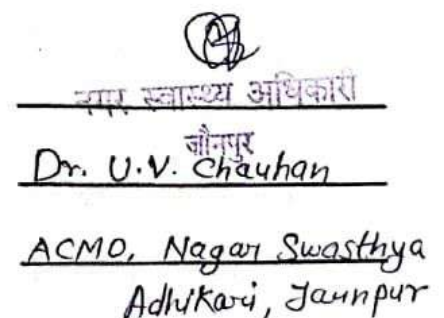 नगर स्वास्थ्य अधिकारी
जौनपुर
Dr. U.V. Chauhan
ACMO, Nagar Swasthya
Adhikari, Jaunpur